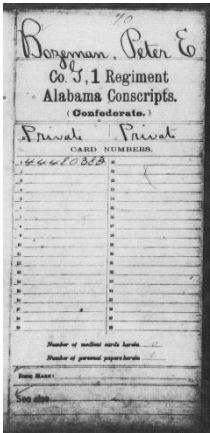 Bozeman, Peter E
Co. I, 1 Regiment
Alabama Conscripts.
(Confederate.)
Private Private
CARD NUMBERS.
1 44480383
Number of medical cards herein 0
Number of personal papers herein 0
BOOK MARK:
See also